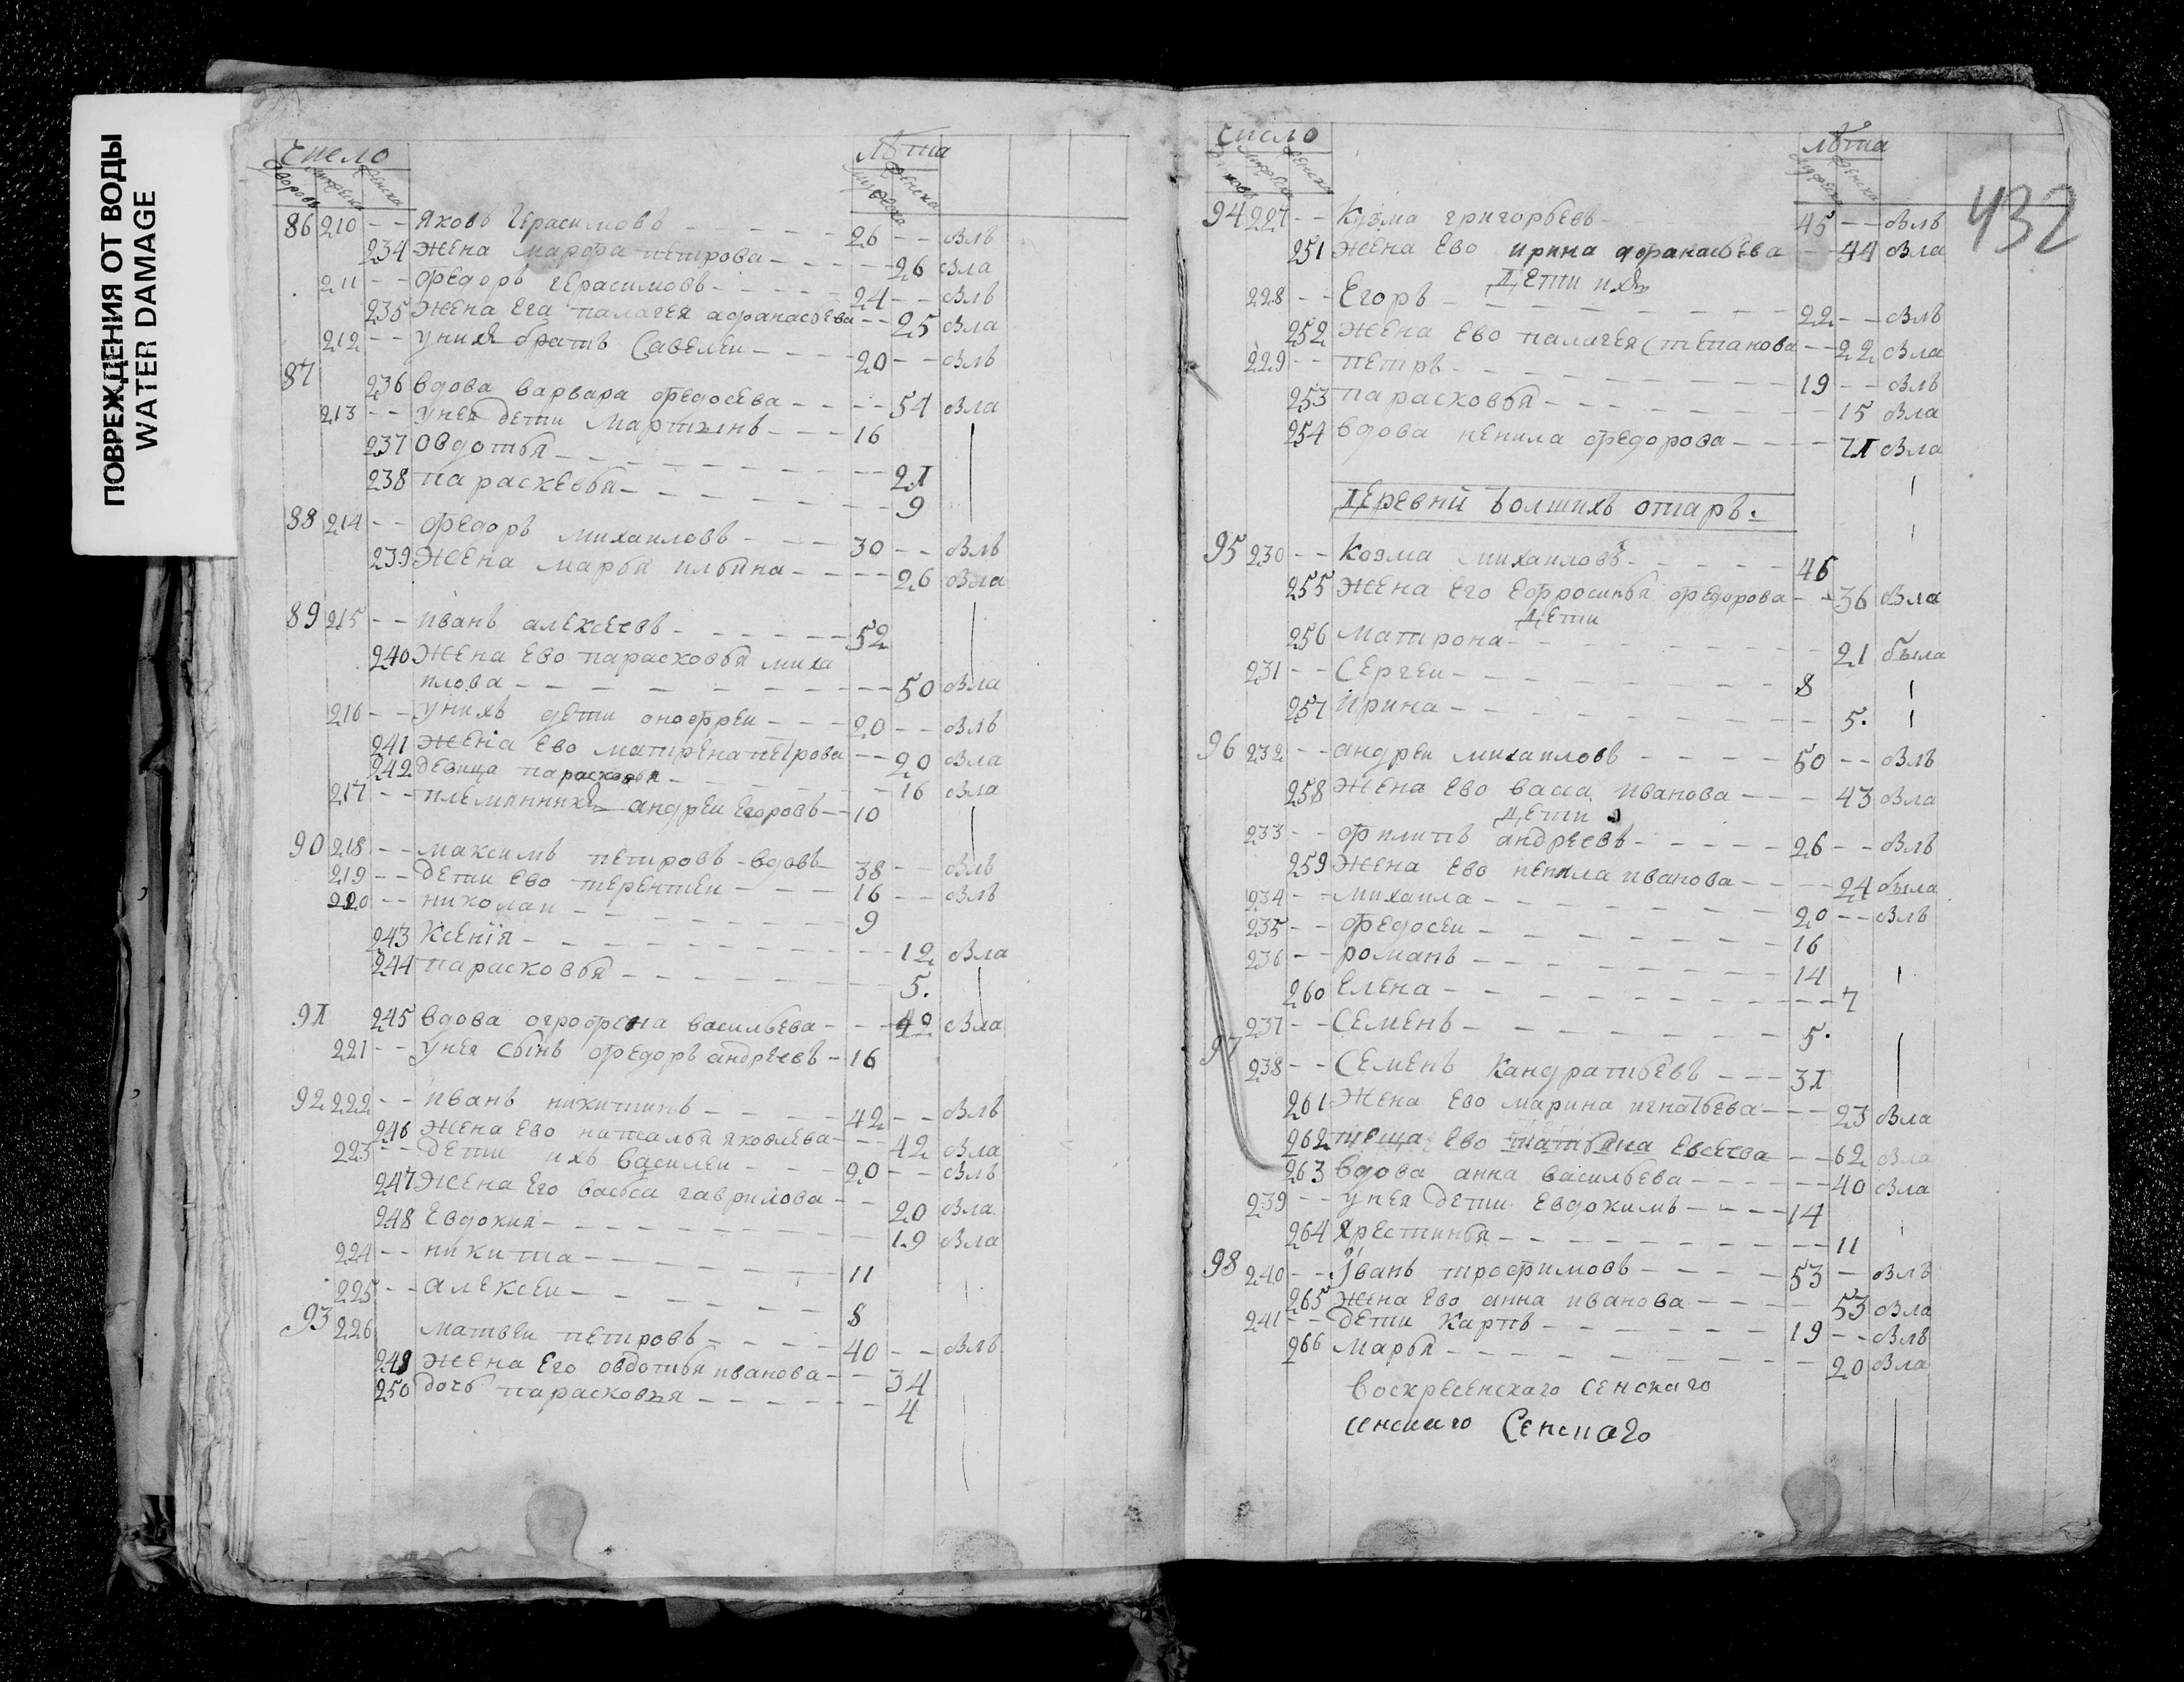 ПОВРЕЖДЕНИЯ ОТ ВОДЫ
WATER DAMAGE
Число Лѣта
дворовъ мужеска женска мужеска женска
86 210 -- Яковъ Герасимовъ 26 -- былъ
234 жена марфа петрова -- 26 была
211 -- федоръ герасимовъ 24 -- былъ
235 жена Его палагея афанасьева -- 25 была
212 -- у них братъ Савелеи 20 -- былъ
87 236 вдова варвара федосѣева -- 54 была
213 -- у нея дети Мартинъ 16
237 Овдотья 21
238 параскевья 9
88 214 -- федоръ михаиловъ 30 -- былъ
239 Жена марья ильина 26 была
89 215 -- иванъ алексеевъ 52
240 Жена ево парасковья миха
илова 50 была
216 -- у нихъ дети онофреи 20 -- былъ
241 жена Ево матрена петрова -- 20 была
242 девица парасковья 16 была
217 -- племянникъ андреи Егоровъ 10
90 218 -- максимъ петровъ вдовъ 38 -- былъ
219 -- дети Ево терентеи 16 -- былъ
220 -- николаи 9
243 Ксенія 12 была
244 парасковья 5.
91 245 вдова огрофена васильева 42 была
221 -- у нея сынъ федоръ андреевъ 16
92 222 -- иванъ никитинъ 42 -- былъ
246 жена Ево наталья яковлева 42 была
223 -- дети ихъ василеи 20 -- былъ
247 Жена Его васса гаврилова 20 была
248 Евдокия 19 была
224 -- никита 11
225 -- алексеи 8
93 226 матвеи петровъ 40 -- былъ
249 жена Его овдотья иванова 34
250 дочь парасковья 4
Число Лѣта 432
мужеска женска мужеска женска
94 227 -- Кузма григорьевъ 45 -- былъ
251 жена Ево ирина афанасьева 44 была
Дети ихъ
228 -- Егоръ 22 -- былъ
252 жена Ево палагея степанова -- 22 была
229 -- петръ 19 -- былъ
253 парасковья 15 была
254 вдова ненила федорова 71 была
Деревни Болшихъ отаръ.
95 230 -- Козма михаиловъ 46
255 жена Его Ефросинья федорова -- 36 была
Дети
256 матрона 21 была
231 -- Сергеи 8
257 ирина 5.
96 232 -- андреи михаиловъ 50 -- былъ
258 жена Ево васса иванова 43 была
Дети
233 -- филипъ андреевъ 26 -- былъ
259 жена Ево ненила иванова 24 была
234 -- михаила 20 -- былъ
235 -- федосеи 16
236 -- романъ 14
260 Елена 7
237 -- Семенъ 5.
97 238 -- Семенъ Кандратьевъ 31
261 Жена Ево марина игнатьева 23 была
262 теща Ево татьяна Евсеева 62 была
263 вдова анна васильева 40 была
239 -- у нея дети Евдокимъ 14
264 хрестинья 11
98 240 -- іванъ трофимовъ 53 -- былъ
265 жена Ево анна иванова 53 была
241 -- дети Карпъ 19 -- былъ
266 марья 20 была
воскресенскаго сенскаго
сенскаго Сенскаго